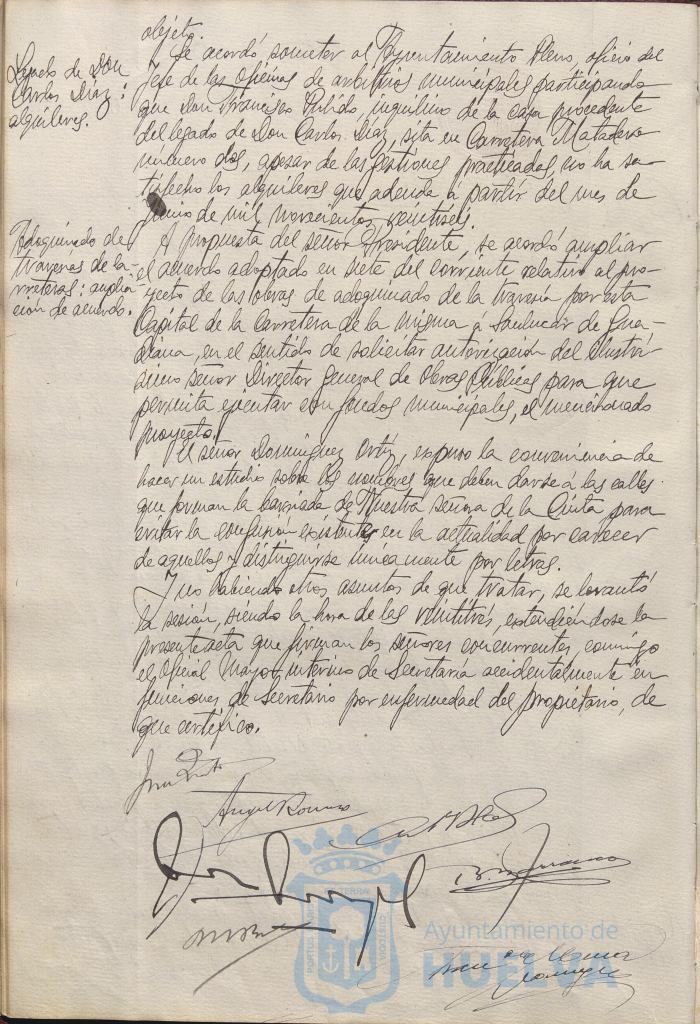 objeto.
Legado de Don
Carlos Díaz:
alquileres.
Se acordó someter al Ayuntamiento Pleno, oficio del
Jefe de las oficinas de arbitrios municipales participando
que Don Francisco Pulido, inquilino de la casa procedente
del legado de Don Carlos Díaz, sita en Carretera Matadero
número dos, apesar de las gestiones practicadas, no ha sa-
tisfecho los alquileres que adeuda á partir del mes de
Junio de mil novecientos veintiseis.
Adoquinado de
travesías de ca-
rreteras: amplia-
ción de acuerdo.
A propuesta del señor Presidente, se acordó ampliar
el acuerdo adoptado en siete del corriente relativo al pro-
yecto de las obras de adoquinado de la travesía por esta
Capital de la carretera de la misma á Sanlucar de Gua-
diana, en el sentido de solicitar autorización del Ilustrí-
simo señor Director General de Obras Públicas para que
permita ejecutar con fondos municipales, el mencionado
proyecto.
El señor Dominguez Ortíz, expuso la conveniencia de
hacer un estudio sobre los nombres que deben darse á las calles
que forman la barriada de Nuestra señora de la Cinta para
evitar la confusión existente en la actualidad por carecer
de aquellos y distinguirse únicamente por letras.
Y no habiendo otros asuntos de que tratar, se levantó
la sesión, siendo la hora de las veintitrés, extendiéndose la
presente acta que firman los señores concurrentes, conmigo
el Oficial Mayor interino de Secretaría accidentalmente en
funciones de Secretario por enfermedad del propietario, de
que certifico.
Angel Romero
Ayuntamiento de
HUELVA